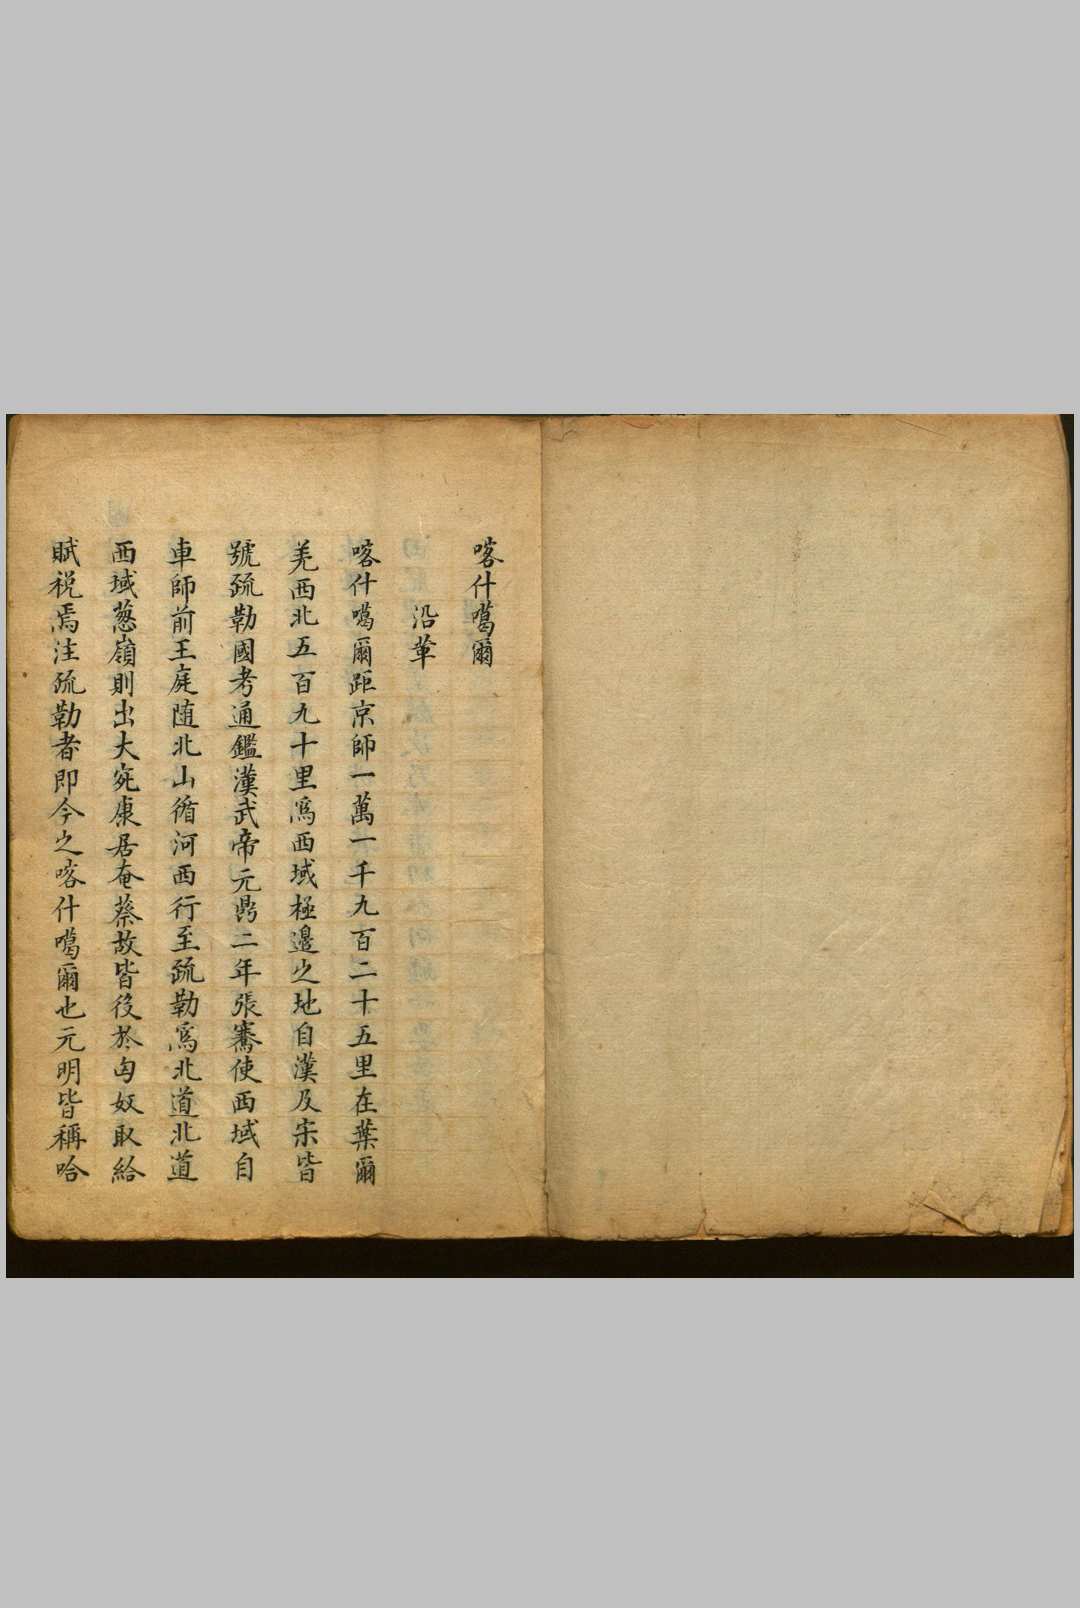 喀什噶爾
沿革
喀什噶爾距京師一萬一千九百二十五里在葉爾
羌西北五百九十里爲西域極邊之地自漢及宋皆
號疏勒國考通鑑漢武帝元鼎二年張騫使西域自
車師前王庭随北山循河西行至疏勒爲北道北道
西域葱嶺則出大宛康居奄蔡故皆役於匈奴取給
賦税焉注疏勒者即今之喀什噶爾也元明皆稱哈